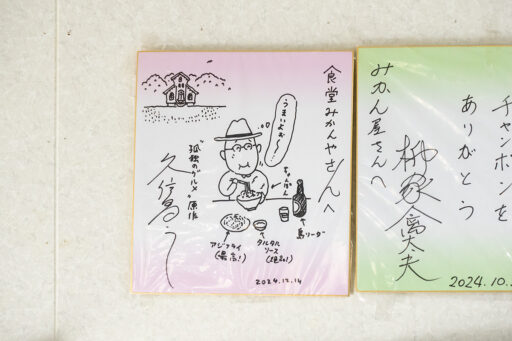 食堂みかんやさんへ
うまいよお〜〜
ちゃんぽん
"孤独のグルメ"原作
久住昌之
島リーダー
アジフライ
(最高!)
タルタル
ソース
(絶品!)
2024.12.14
チャンポンを
ありがとう
みかん屋さんへ
2024.10.